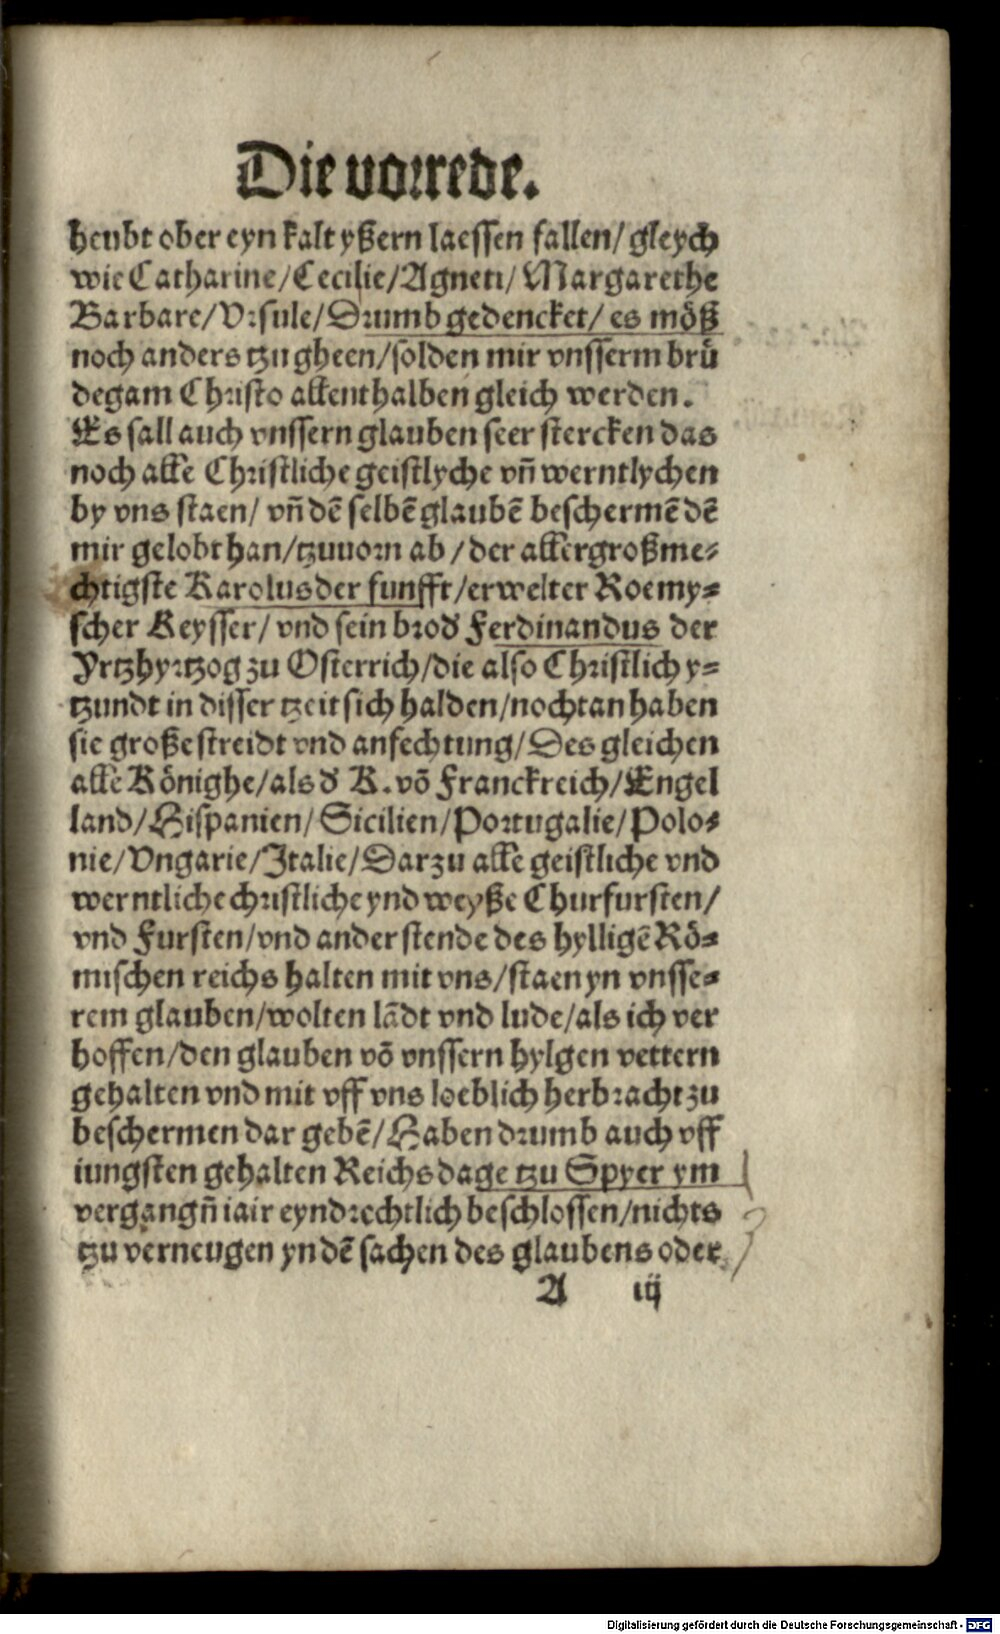 Die vorrede.
heubt ober eyn kalt yßern laessen fallen/ gleych
wie Catharine/Cecilie/Agneti/ Margarethe
Barbare/Vrsule/Drumb gedencket/ es möß
noch anders tzu gheen/solden mir vnsserm brü
degam Christo allenthalben gleich werden.
Es sall auch vnssern glauben seer stercken das
noch alle Christliche geistlyche vñ werntlychen
by vns staen/ vñ dē selbē glaubē beschermē dē
mir gelobt han/tzuuorn ab / der allergroßme⸗
chtigste Karolus der funfft/erwelter Roemy⸗
scher Keysser/ vnd sein brod̛ Ferdinandus der
Yrtzhyrtzog zu Osterrich/die also Christlich y⸗
tzundt in disser tzeit sich halden/nochtan haben
sie große streidt vnd anfechtung/Des gleichen
alle Könighe/als d̛ K. vō Franckreich/Engel
land/Hispanien/Sicilien/Portugalie/Polo⸗
nie/Vngarie/Italie/Darzu alle geistliche vnd
werntliche christliche ynd weyße Churfursten/
vnd Fursten/vnd ander stende des hylligē Rö⸗
mischen reichs halten mit vns/staen yn vnsse⸗
rem glauben/wolten lādt vnd lude/als ich ver
hoffen/den glauben vō vnssern hylgen vettern
gehalten vnd mit vff vns loeblich herbracht zu
beschermen dar gebē/Haben drumb auch vff
iungsten gehalten Reichsdage tzu Spyer ym
vergangñ iair eyndrechtlich beschlossen/nichts
tzu verneugen yn dē sachen des glaubens oder
A iij
Digitalisierung gefördert durch die Deutsche Forschungsgemeinschaft - DFG